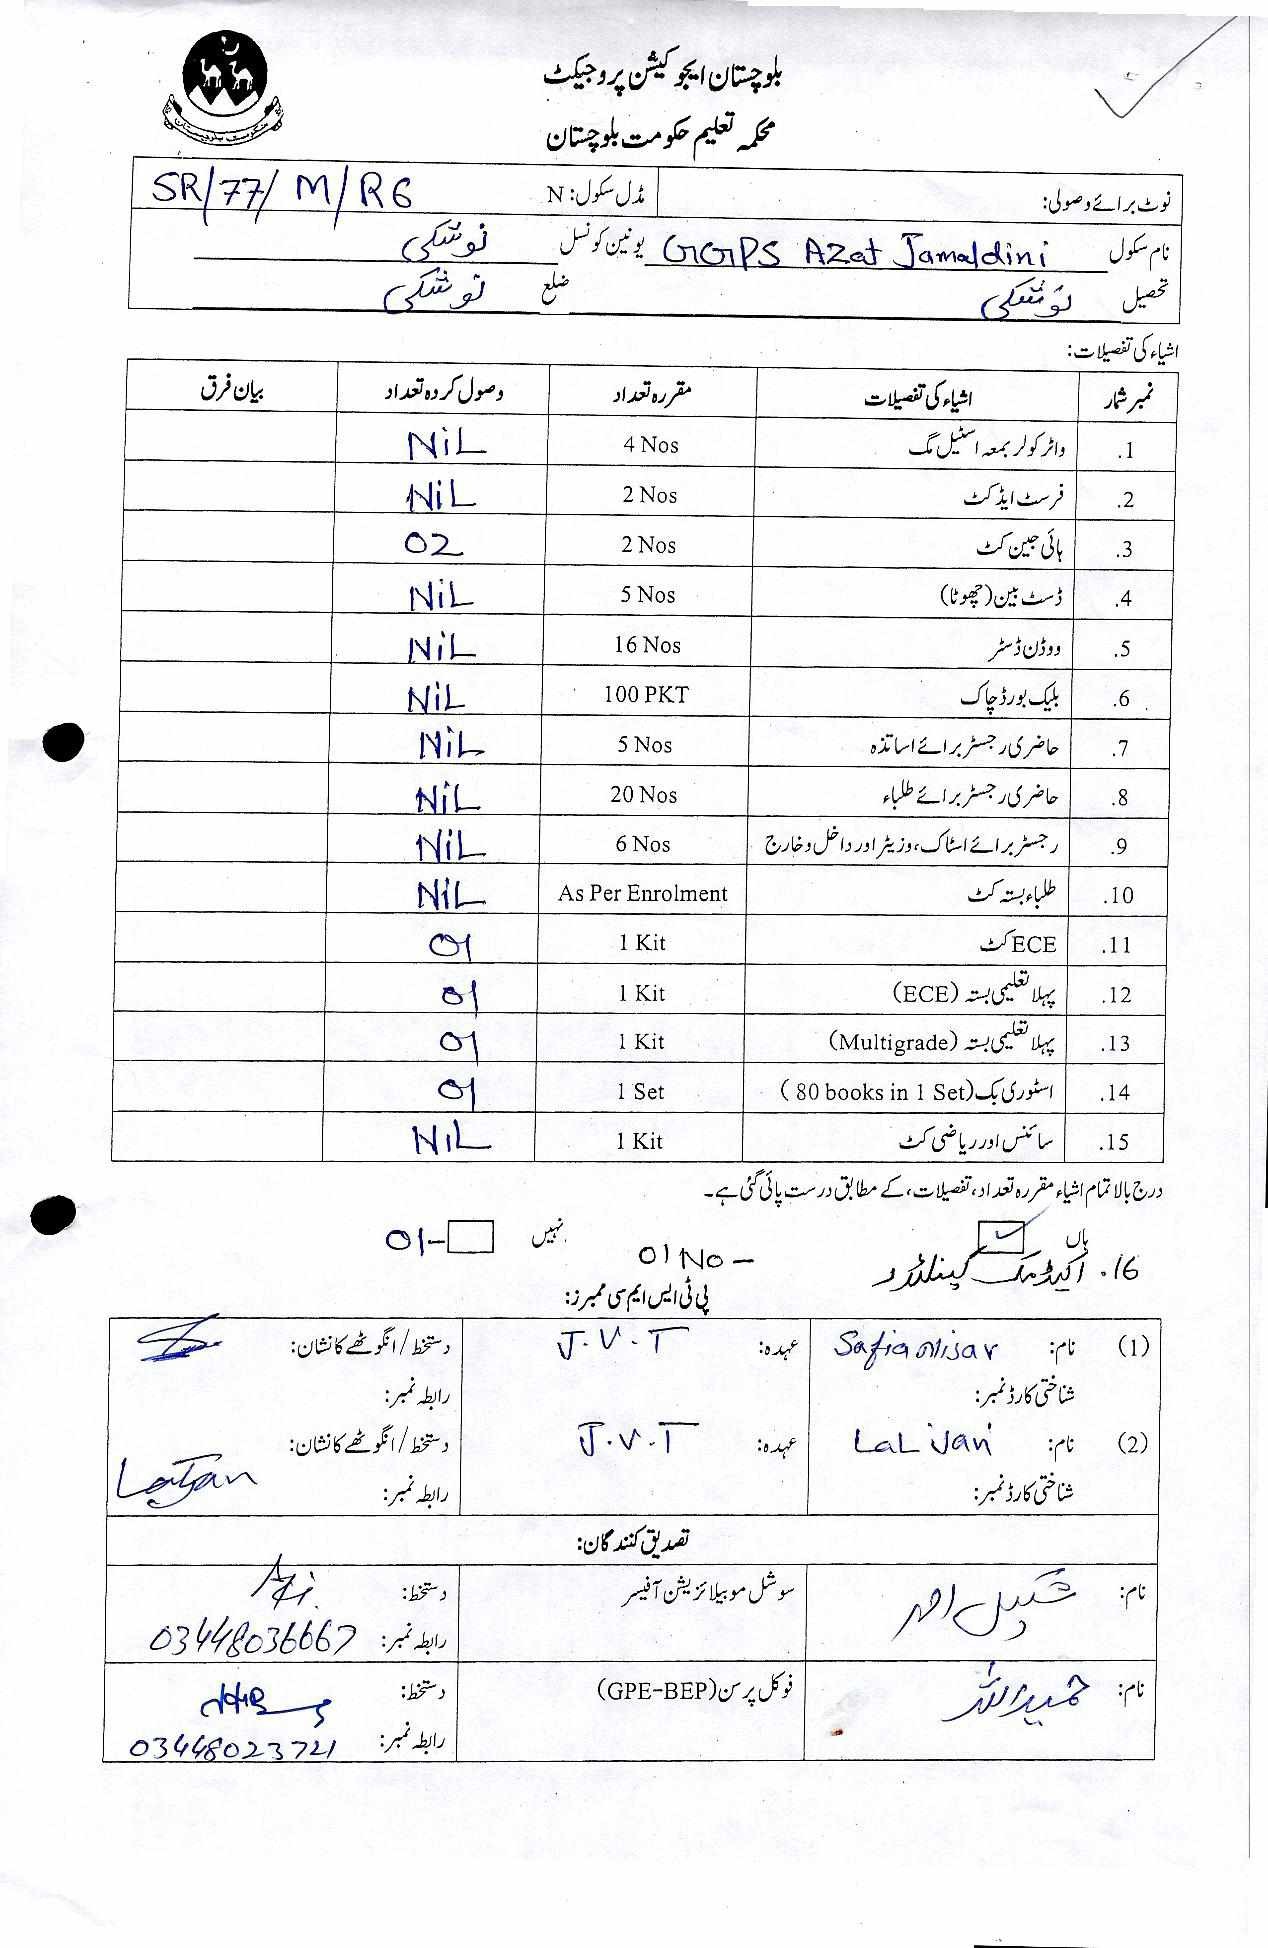 بلوچستان ایجوکیشن پروجیکٹ
محکمہ تعلیم حکومت بلوچستان
نوٹ برائے وصولی: مڈل سکول: N SR/77/M/R6
نام سکول GGPS Azat Jamaldini یونین کونسل نوشکی
تحصیل نوشکی ضلع نوشکی
اشیاء کی تفصیلات:
نمبر شمار اشیاء کی تفصیلات مقررہ تعداد وصول کردہ تعداد بیان فرق
1. واٹر کولر بمعہ اسٹیل مگ 4 Nos NiL
2. فرسٹ ایڈ کٹ 2 Nos NiL
3. ہائی جین کٹ 2 Nos 02
4. ڈسٹ بین (چھوٹا) 5 Nos NiL
5. ووڈن ڈسٹر 16 Nos NiL
6. بلیک بورڈ چاک 100 PKT NiL
7. حاضری رجسٹر برائے اساتذہ 5 Nos NiL
8. حاضری رجسٹر برائے طلباء 20 Nos NiL
9. رجسٹر برائے اسٹاک، وزیٹر اور داخل و خارج 6 Nos NiL
10. طلباء بستہ کٹ As Per Enrolment NiL
11. ECE کٹ 1 Kit 01
12. پہلا تعلیمی بستہ (ECE) 1 Kit 01
13. پہلا تعلیمی بستہ (Multigrade) 1 Kit 01
14. اسٹوری بک (80 books in 1 Set) 1 Set 01
15. سائنس اور ریاضی کٹ 1 Kit NiL
درج بالا تمام اشیاء مقررہ تعداد، تفصیلات، کے مطابق درست پائی گئی ہے۔
ہاں نہیں 01-
16. اکیڈمک کیلنڈر 01 No -
پی ٹی ایس ایم سی ممبرز:
(1) نام: Safia Nisar عہدہ: J.V.T دستخط/انگوٹھے کا نشان:
شناختی کارڈ نمبر: رابطہ نمبر:
(2) نام: LaL Jan عہدہ: J.V.T دستخط/انگوٹھے کا نشان: LalJan
شناختی کارڈ نمبر: رابطہ نمبر:
تصدیق کنندگان:
نام: شکیل احمد سوشل موبیلائزیشن آفیسر دستخط:
رابطہ نمبر: 03448036667
نام: حمیداللہ فوکل پرسن (GPE-BEP) دستخط:
رابطہ نمبر: 03448023721